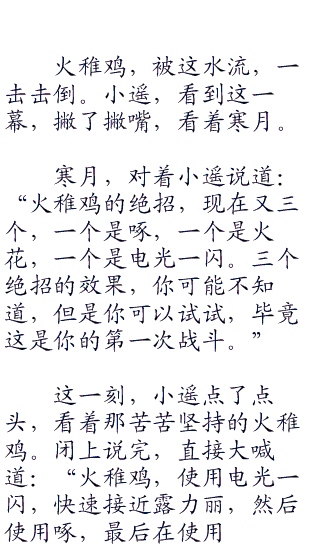 火稚鸡，被这水流，一
击击倒。小遥，看到这一
幕，撇了撇嘴，看着寒月。
寒月，对着小遥说道：
“火稚鸡的绝招，现在又三
个，一个是啄，一个是火
花，一个是电光一闪。三个
绝招的效果，你可能不知
道，但是你可以试试，毕竟
这是你的第一次战斗。”
这一刻，小遥点了点
头，看着那苦苦坚持的火稚
鸡。闭上说完，直接大喊
道：“火稚鸡，使用电光一
闪，快速接近露力丽，然后
使用啄，最后在使用